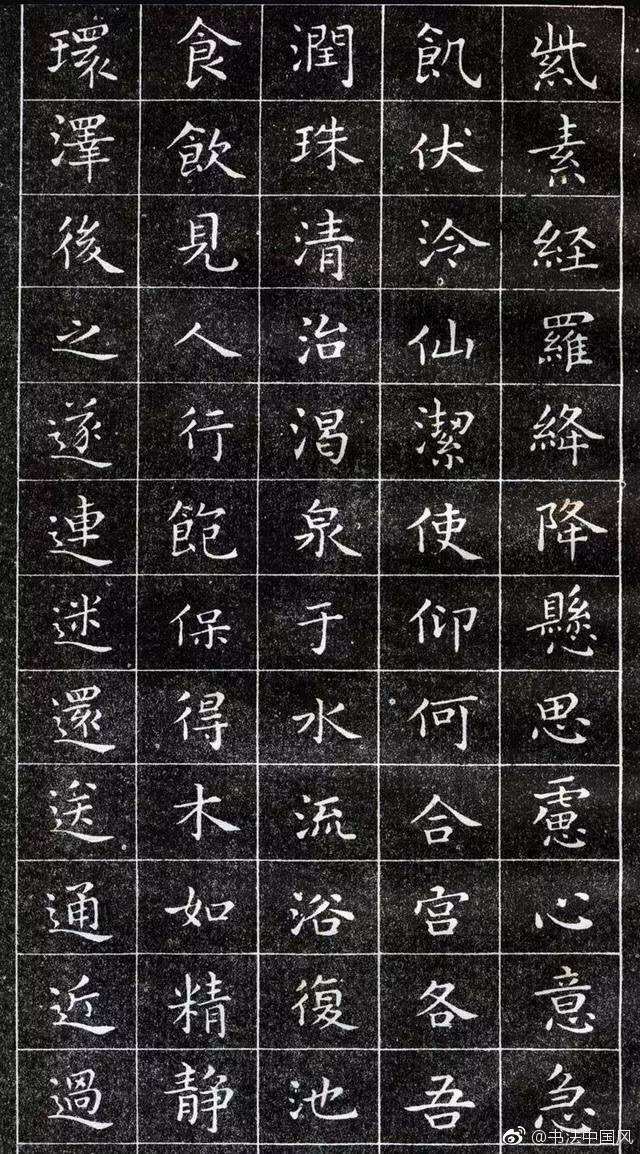 紫素経羅絳降懸思慮心意急
飢伏泠仙潔使仰何合宮各吾
潤珠清治渴泉于水流浴復池
食飲見人行飽保得木如精靜
環澤後之遂連迷還送通近過
@书法中国风